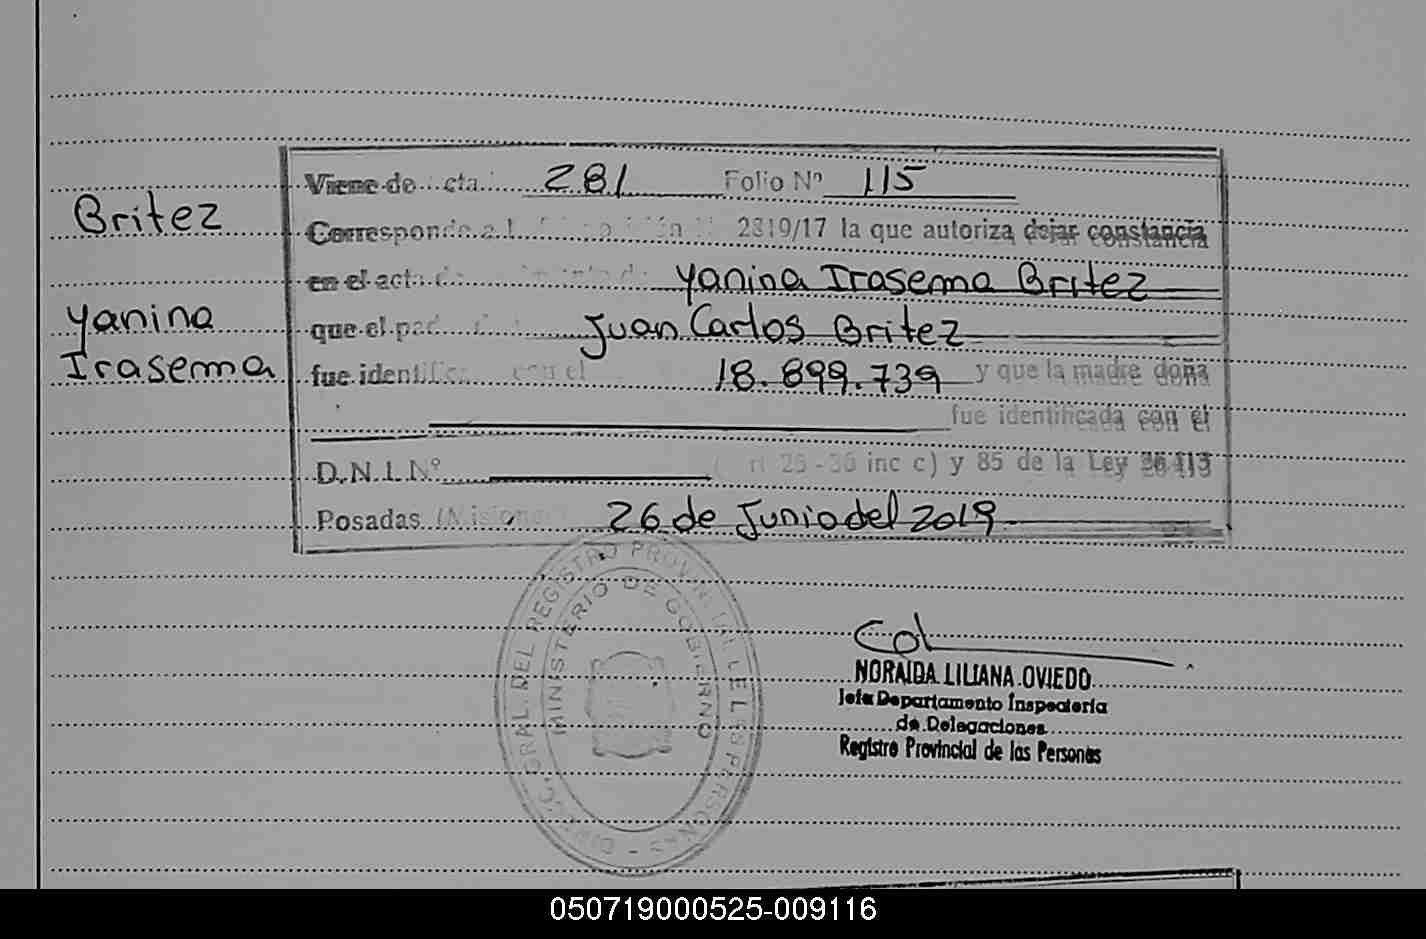 Britez
Yanina
Irasema
Viene de acta 281 Folio Nº 115
Corresponde a l 2319/17 la que autoriza dejar constancia
en el acta de Yanina Irasema Britez
que el pad Juan Carlos Britez
fue identific con el 18.899.739 y que la madre doña
fue identificada con el
D.N.I. Nº 25 - 36 inc c) y 85 de la Ley 26413
Posadas (Misiones 26 de Junio del 2019
DIREC. GRAL. DEL REGISTRO PROVINCIAL DE LAS PERSONAS
MINISTERIO DE GOBIERNO
NORAIDA LILIANA OVIEDO
Jefa Departamento Inspectoría
de Delegaciones
Registro Provincial de las Personas
050719000525-009116